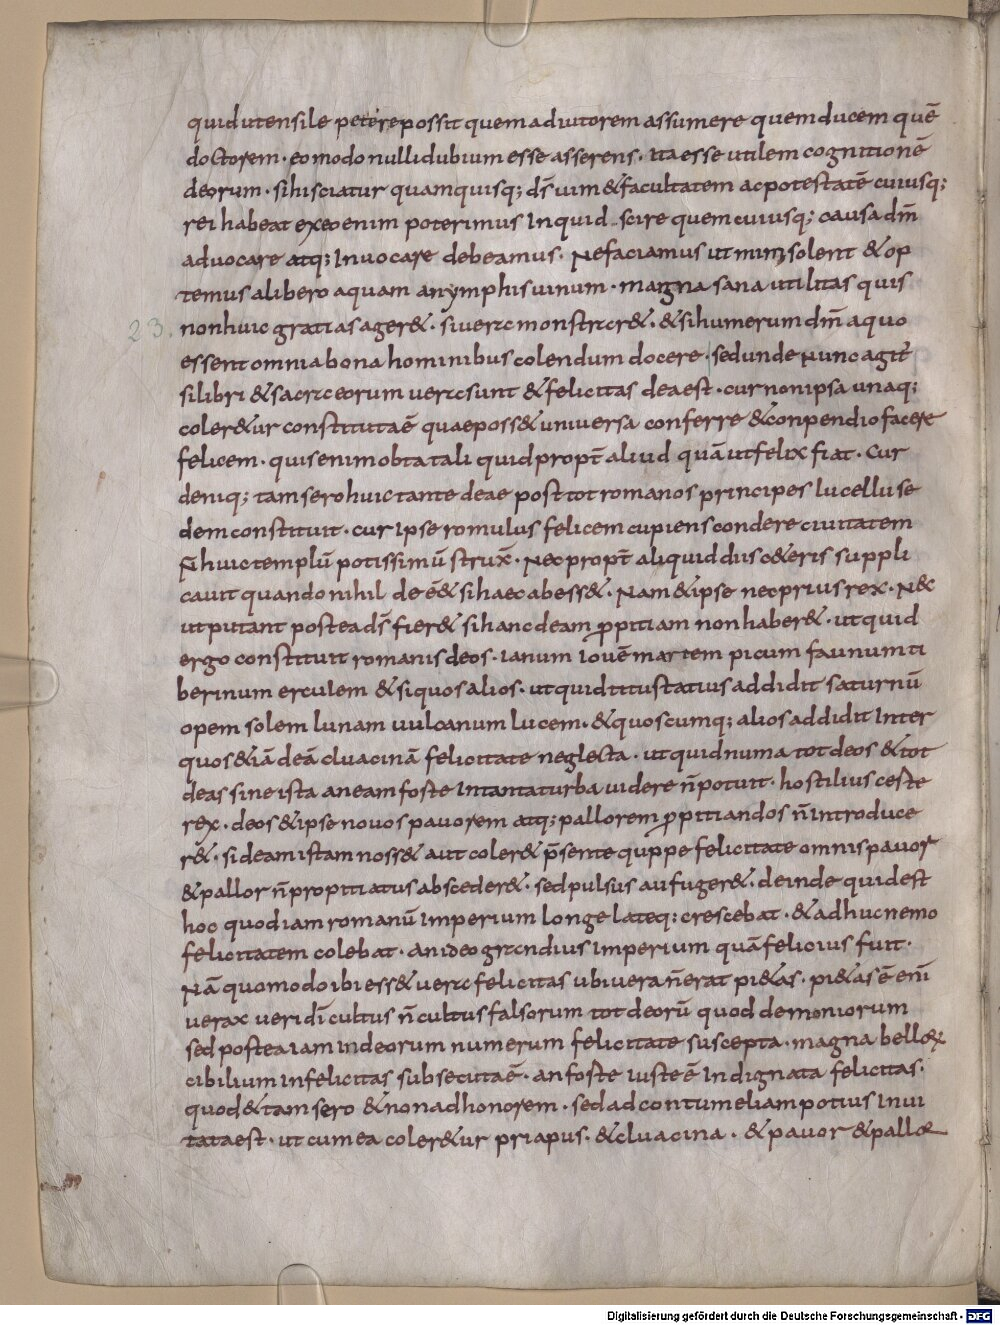 quid utensile petere possit quem adiutorem assumere quem ducem quē
doctorem · eo modo nulli dubium esse asserens · ita esse utilem cognitionē
deorum · si his ciatur quam quisq; ds̄ uim & facultatem ac potestatē cuiusq;
rei habeat ex eo enim poterimus inquid scire quem cuiusq; causa dm̄
aduocare atq; inuocare debeamus · Ne faciamus ut mimi solent & op
temus a libero aquam a nymphis uinum · magna sana utilitas quis
23. non huic gratias ager& · si uera monstrar& · & si hum uerum dm̄ a quo
essent omnia bona hominibus colendum docere · sed unde nunc agit̄
si libri & sacra eorum uera sunt & felicitas dea est · cur non ipsa unaq;
coler&ur constituta ē quae poss& uniuersa conferre & conpendio facere
felicem · quis enim obtat ali quid propt̄ aliud quā ut felix fiat · Cur
deniq; tam sero huic tante deae post tot romanos principes lucellus e
dem constituit · cur ipse romulus felicem cupiens condere ciuitatem
n̄ huic templū potissimū strux̄ · Nec propt̄ aliquid diis c&eris suppli
cauit quando nihil de ē& si haec abess& · Nam & ipse nec prius rex · Nec
ut putant postea ds̄ fier& si hanc deam propitiam non haber& · ut quid
ergo constituit romanis deos · ianum iouē martem picum faunum ti
berinum erculem & si quos alios · ut quid titus tatius addidit saturnū
opem solem lunam uulcanum lucem · & quoscumq; alios addidit inter
quos &iā deā cluacinā felicitate neglecta · ut quid numa tot deos & tot
deas sine ista an eam foste in tanta turba uidere n̄ potuit · hostilius ceste
rex · deos & ipse nouos pauorem atq; pallorem propitiandos n̄ introduce
r& · si deam istam noss& aut coler& p̄sente quppe felicitate omnis pauor
& pallor n̄ propitiatus absceder& · sed pulsus aufuger& · deinde quid est
hoc quod iam romanū imperium longe lateq; crescebat · & adhuc nemo
felicitatem colebat · an ideo grandius imperium quā felicius fuit ·
Nā quomodo ibi ess& uera felicitas ubi uera n̄ erat pi&as · pi&as ē enī
uerax ueri dī cultus n̄ cultus falsorum tot deorū quod demoniorum
sed postea iam in deorum numerum felicitate suscepta · magna bellor
cibilium infelicitas subsecuta ē · an foste iuste ē indignata felicitas ·
quod & tam sero & non ad honorem · sed ad contumeliam potius inui
tata est · ut cum ea coler&ur priapus · & cluacina · & pauor & pallor
Digitalisierung gefördert durch die Deutsche Forschungsgemeinschaft - DFG